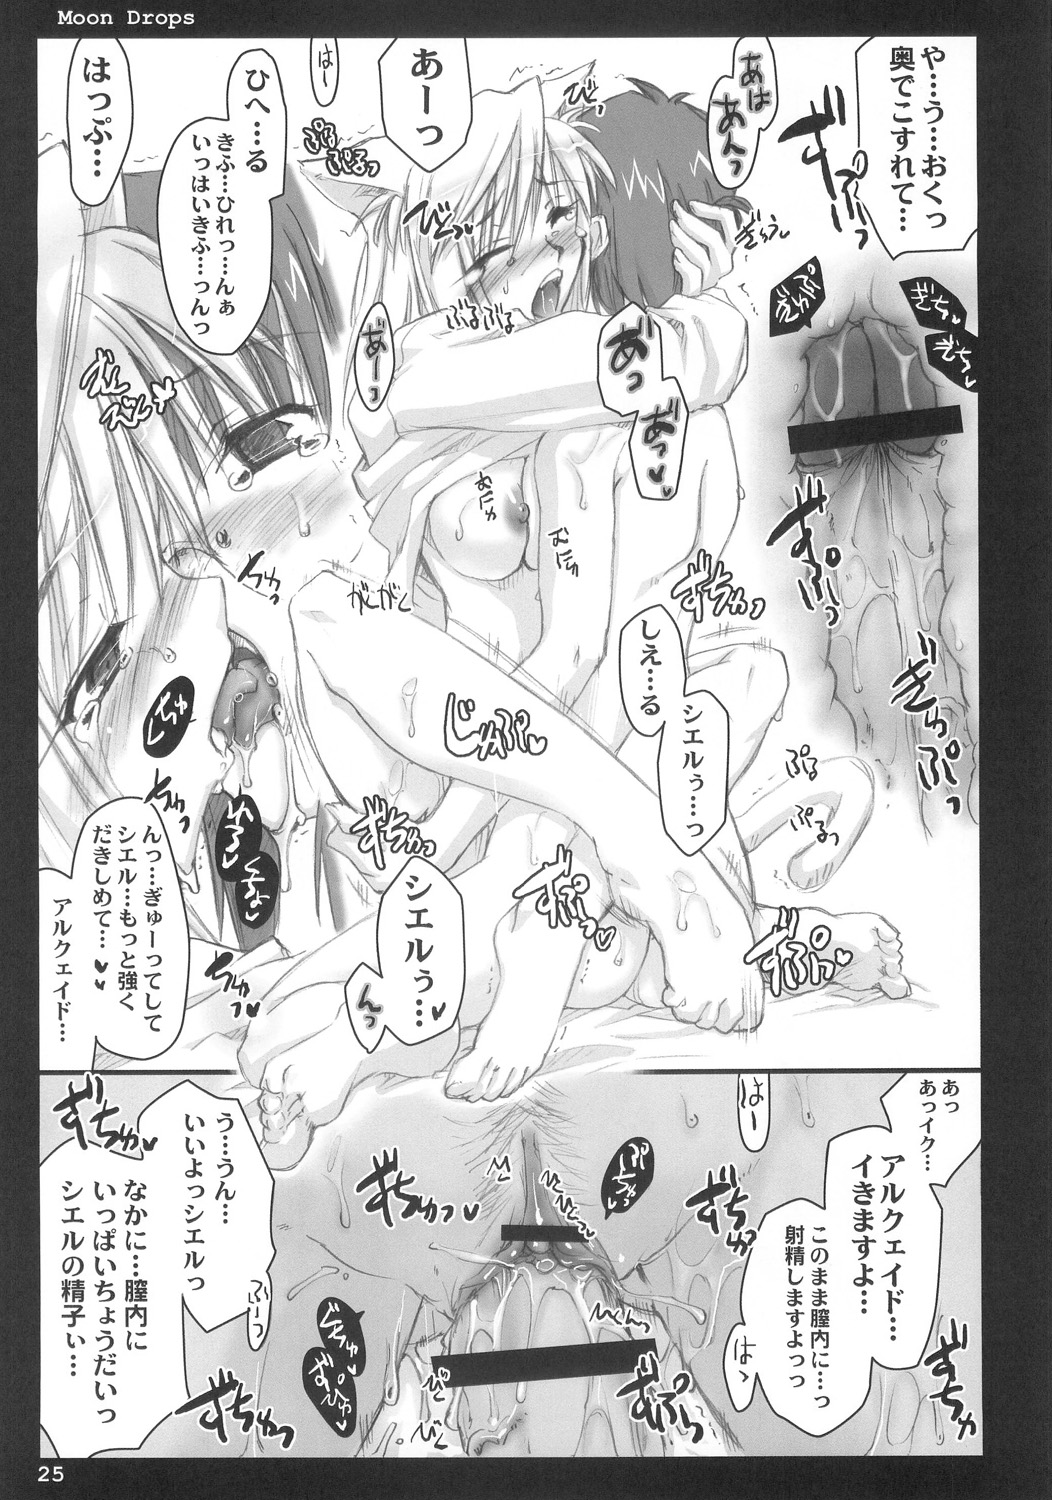 Moon Drops
や…う…おくっ
奥でこすれて…
あはぁ
あんっ
あーっ
はー
ひへ…る
きふ…ひれっ…んぁ
いっはいきふ…っんっ
はっぷ…
びくっ
ぷるぷる
ぷるっ
びくっ
ぎゅう
ぷるぷる
あーっ
あっ
あっ
ぎちっ
ぎちっ
むにゅ
むにゅ
がくがく
ぢゅっ
ぎぢゅっ
しえ…る
シエルぅ…っ
じゅぷっ
ぷる
ぷるっ
ぢゅっ
ぎぢゅっ
シエルぅ…
んっ
んっ…ぎゅーってして
シエル…もっと強く
だきしめて…
アルクェイド…
ぢゅっ
あっ
あっイク…
アルクェイド…
イきますよ…
このまま膣内に…っ
射精しますよっっ
はー
はっ
う…うん…
いいよっシエルっ
ふーっ
なかに…膣内に
いっぱいちょうだいっ
シエルの精子ぃ…
ぎぢゅ
ぎぢゅっ
ぎぢゅっ
25